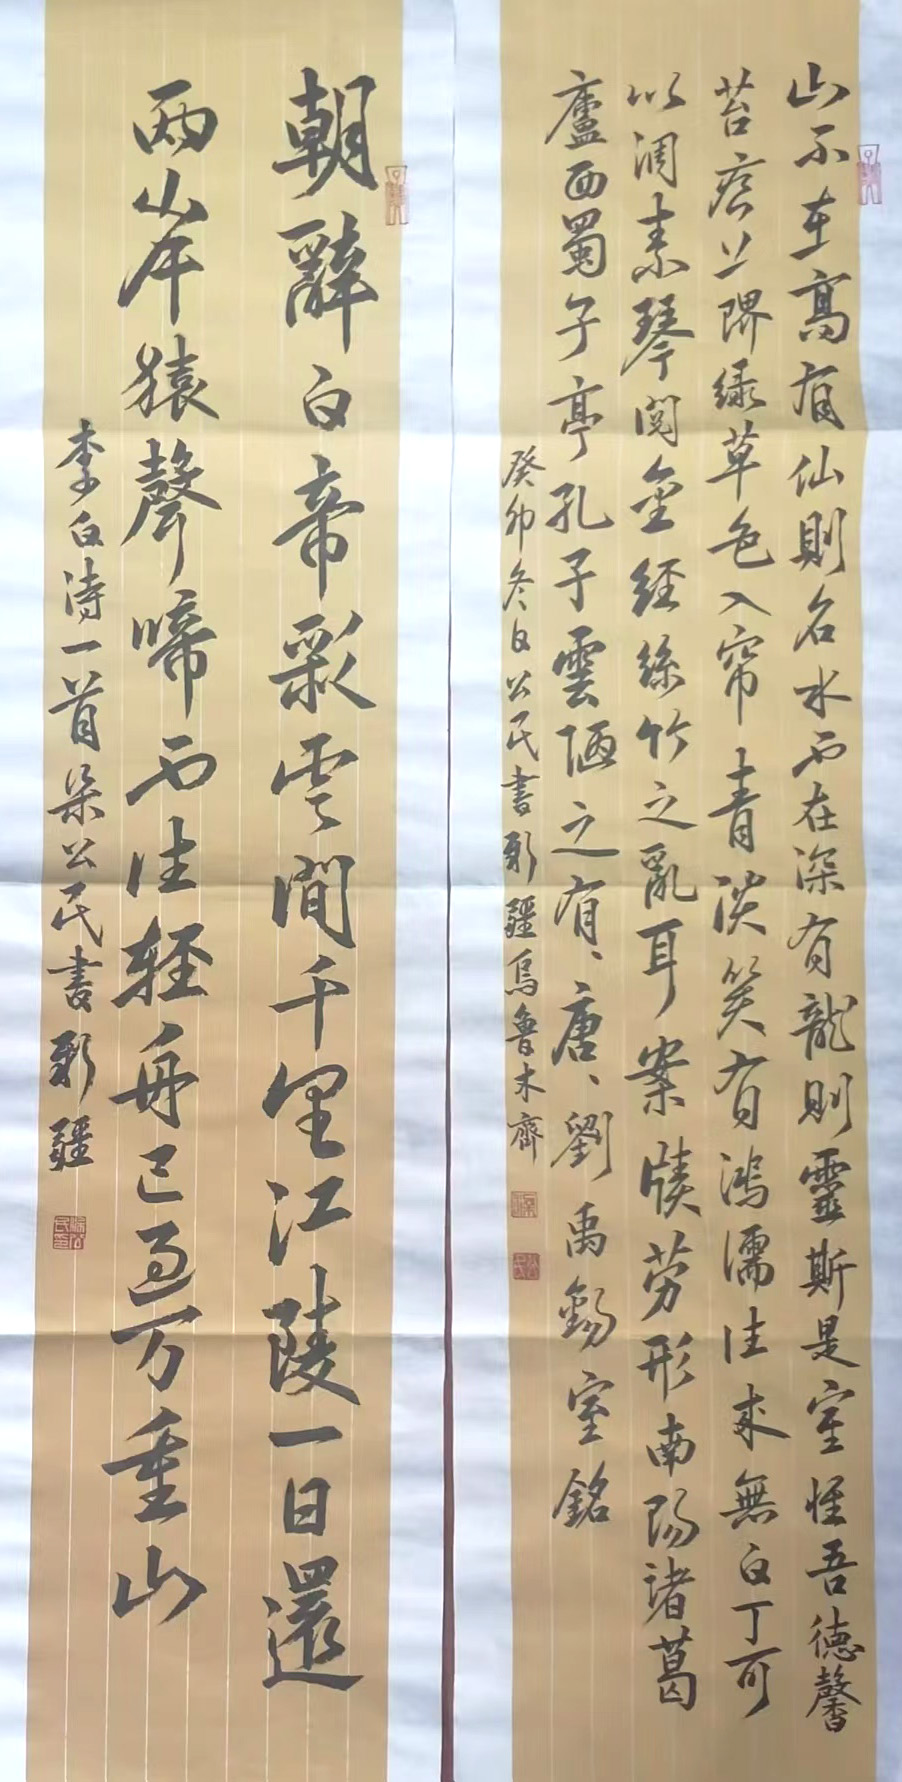 山不在高有仙則名水不在深有龍則靈斯是室惟吾德馨
苔痕上階緑草色入帘青談笑有鴻儒往來無白丁可
以調素琴閱金經絲竹之亂耳案牘勞形南陽諸葛
廬西蜀子亭孔子雲陋之有、唐、劉禹錫室銘
癸卯冬日公民書新疆烏魯木齊
朝辭白帝彩云間千里江陵一日還
兩岸猿聲啼不住輕舟已過万重山
李白詩一首公民書新疆